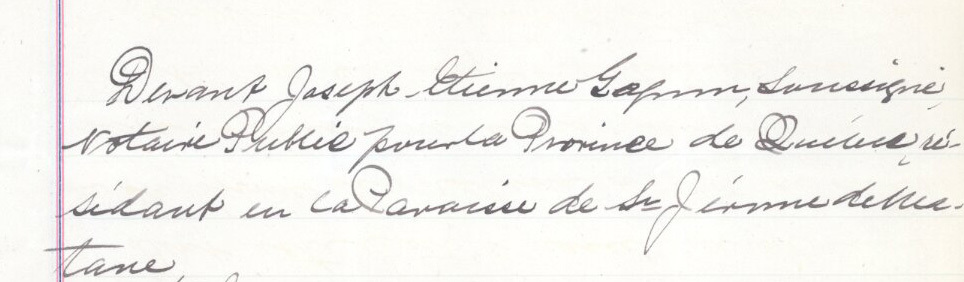 Devant Joseph Etienne Gagnon, Soussigné,
Notaire Public pour la Province de Québec, ré-
sidant en la Paroisse de St Jérome de Ma-
tane,